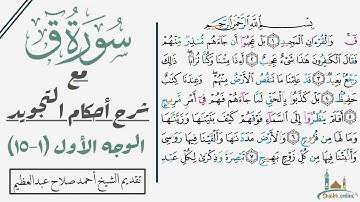 سورة ق
مع
شرح أحكام التجويد
الوجه الأول (١-١٥)
تقديم الشيخ أحمد صلاح عبدالعظيم
بِسْمِ اللَّهِ الرَّحْمَٰنِ الرَّحِيمِ
قٓ ۚ وَالْقُرْآنِ الْمَجِيدِ ١ بَلْ عَجِبُوا أَن جَاءَهُم مُّنذِرٌ مِّنْهُمْ
فَقَالَ الْكَافِرُونَ هَٰذَا شَيْءٌ عَجِيبٌ ٢ أَإِذَا مِتْنَا وَكُنَّا تُرَابًا ۖ ذَٰلِكَ
رَجْعٌ بَعِيدٌ ٣ قَدْ عَلِمْنَا مَا تَنقُصُ الْأَرْضُ مِنْهُمْ ۖ وَعِندَنَا كِتَابٌ
حَفِيظٌ ٤ بَلْ كَذَّبُوا بِالْحَقِّ لَمَّا جَاءَهُمْ فَهُمْ فِي أَمْرٍ مَّرِيجٍ
٥ أَفَلَمْ يَنظُرُوا إِلَى السَّمَاءِ فَوْقَهُمْ كَيْفَ بَنَيْنَاهَا وَزَيَّنَّاهَا
وَمَا لَهَا مِن فُرُوجٍ ٦ وَالْأَرْضَ مَدَدْنَاهَا وَأَلْقَيْنَا فِيهَا رَوَاسِيَ
وَأَنبَتْنَا فِيهَا مِن كُلِّ زَوْجٍ بَهِيجٍ ٧ تَبْصِرَةً وَذِكْرَىٰ لِكُلِّ عَبْدٍ
Shaikh online